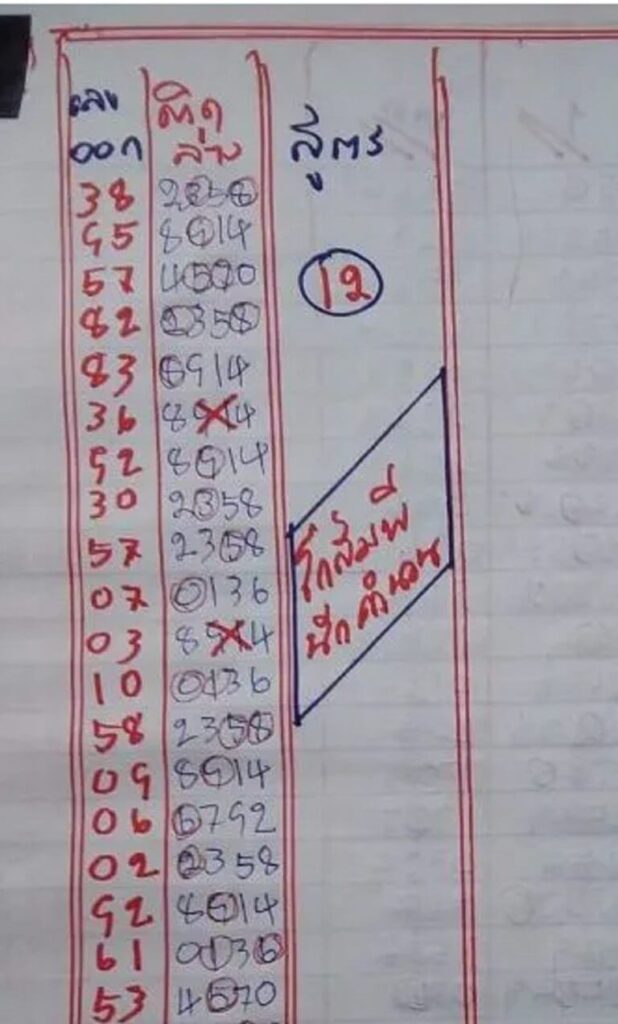 เลข ติด
ออก ล่าง สูตร
38 2358
95 8914
57 4570
12
82 2358
83 6914
36 8914
92 8914
30 2358
57 2358
โกสัมพี
07 0136
นักคำนวน
03 8914
10 0136
58 2358
09 8914
06 6792
02 2358
92 8914
61 0136
53 4570